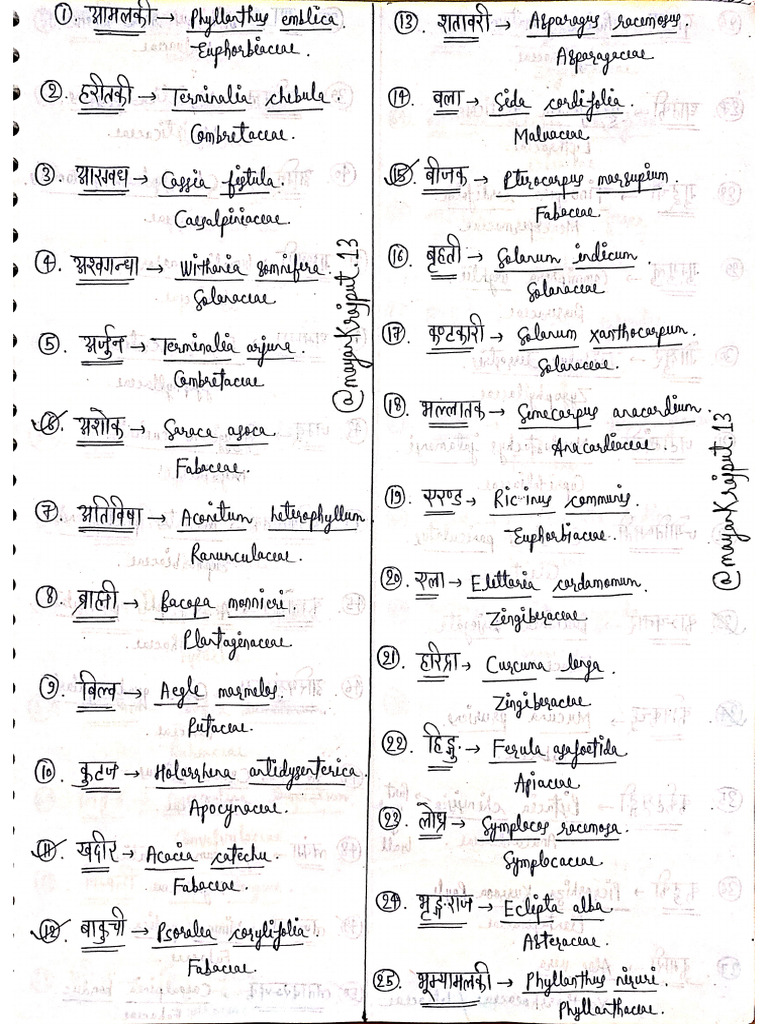 ① आमलकी → Phyllanthus emblica.
Euphorbiaceae.
② हरीतकी → Terminalia chebula.
Combretaceae.
③. आरग्वध → Cassia fistula.
Caesalpiniaceae.
④. अश्वगन्धा → Withania somnifera.
Solanaceae
⑤. अर्जुन → Terminalia arjuna
Combretaceae
⑥. अशोक → Saraca asoca.
Fabaceae.
⑦. अतिविषा → Aconitum heterophyllum
Ranunculaceae
⑧. ब्राह्मी → Bacopa monnieri
Plantaginaceae
⑨. बिल्व → Aegle marmelos.
Rutaceae.
⑩. कुटज → Holarrhena antidysenterica.
Apocynaceae
⑪. खदीर → Acacia catechu
Fabaceae.
⑫. बाकुची → Psoralia corylifolia
Fabaceae.
@mayankrajput.13
⑬. शतावरी → Asparagus racemosus
Asparagaceae.
⑭. बला → Sida cordifolia.
Malvaceae
⑮. बीजक → Pterocarpus marsupium.
Fabaceae
⑯. बृहती → Solanum indicum.
Solanaceae
⑰. कण्टकारी → Solanum xanthocarpum.
Solanaceae.
⑱. भल्लातक → Semecarpus anacardium.
Anacardiaceae.
⑲. एरण्ड → Ricinus communis.
Euphorbiaceae.
⑳. एला → Elettaria cardamomum.
Zingiberaceae
㉑. हरिद्रा → Curcuma longa.
Zingiberaceae.
㉒. हिङ्गु → Ferula asafoetida
Apiaceae
㉓. लोध्र → Symplocos racemosa.
Symplocaceae
㉔. भृङ्गराज → Eclipta alba
Asteraceae.
㉕. भूम्यामलकी → Phyllanthus niruri.
Phyllanthaceae.
@mayankrajput.13